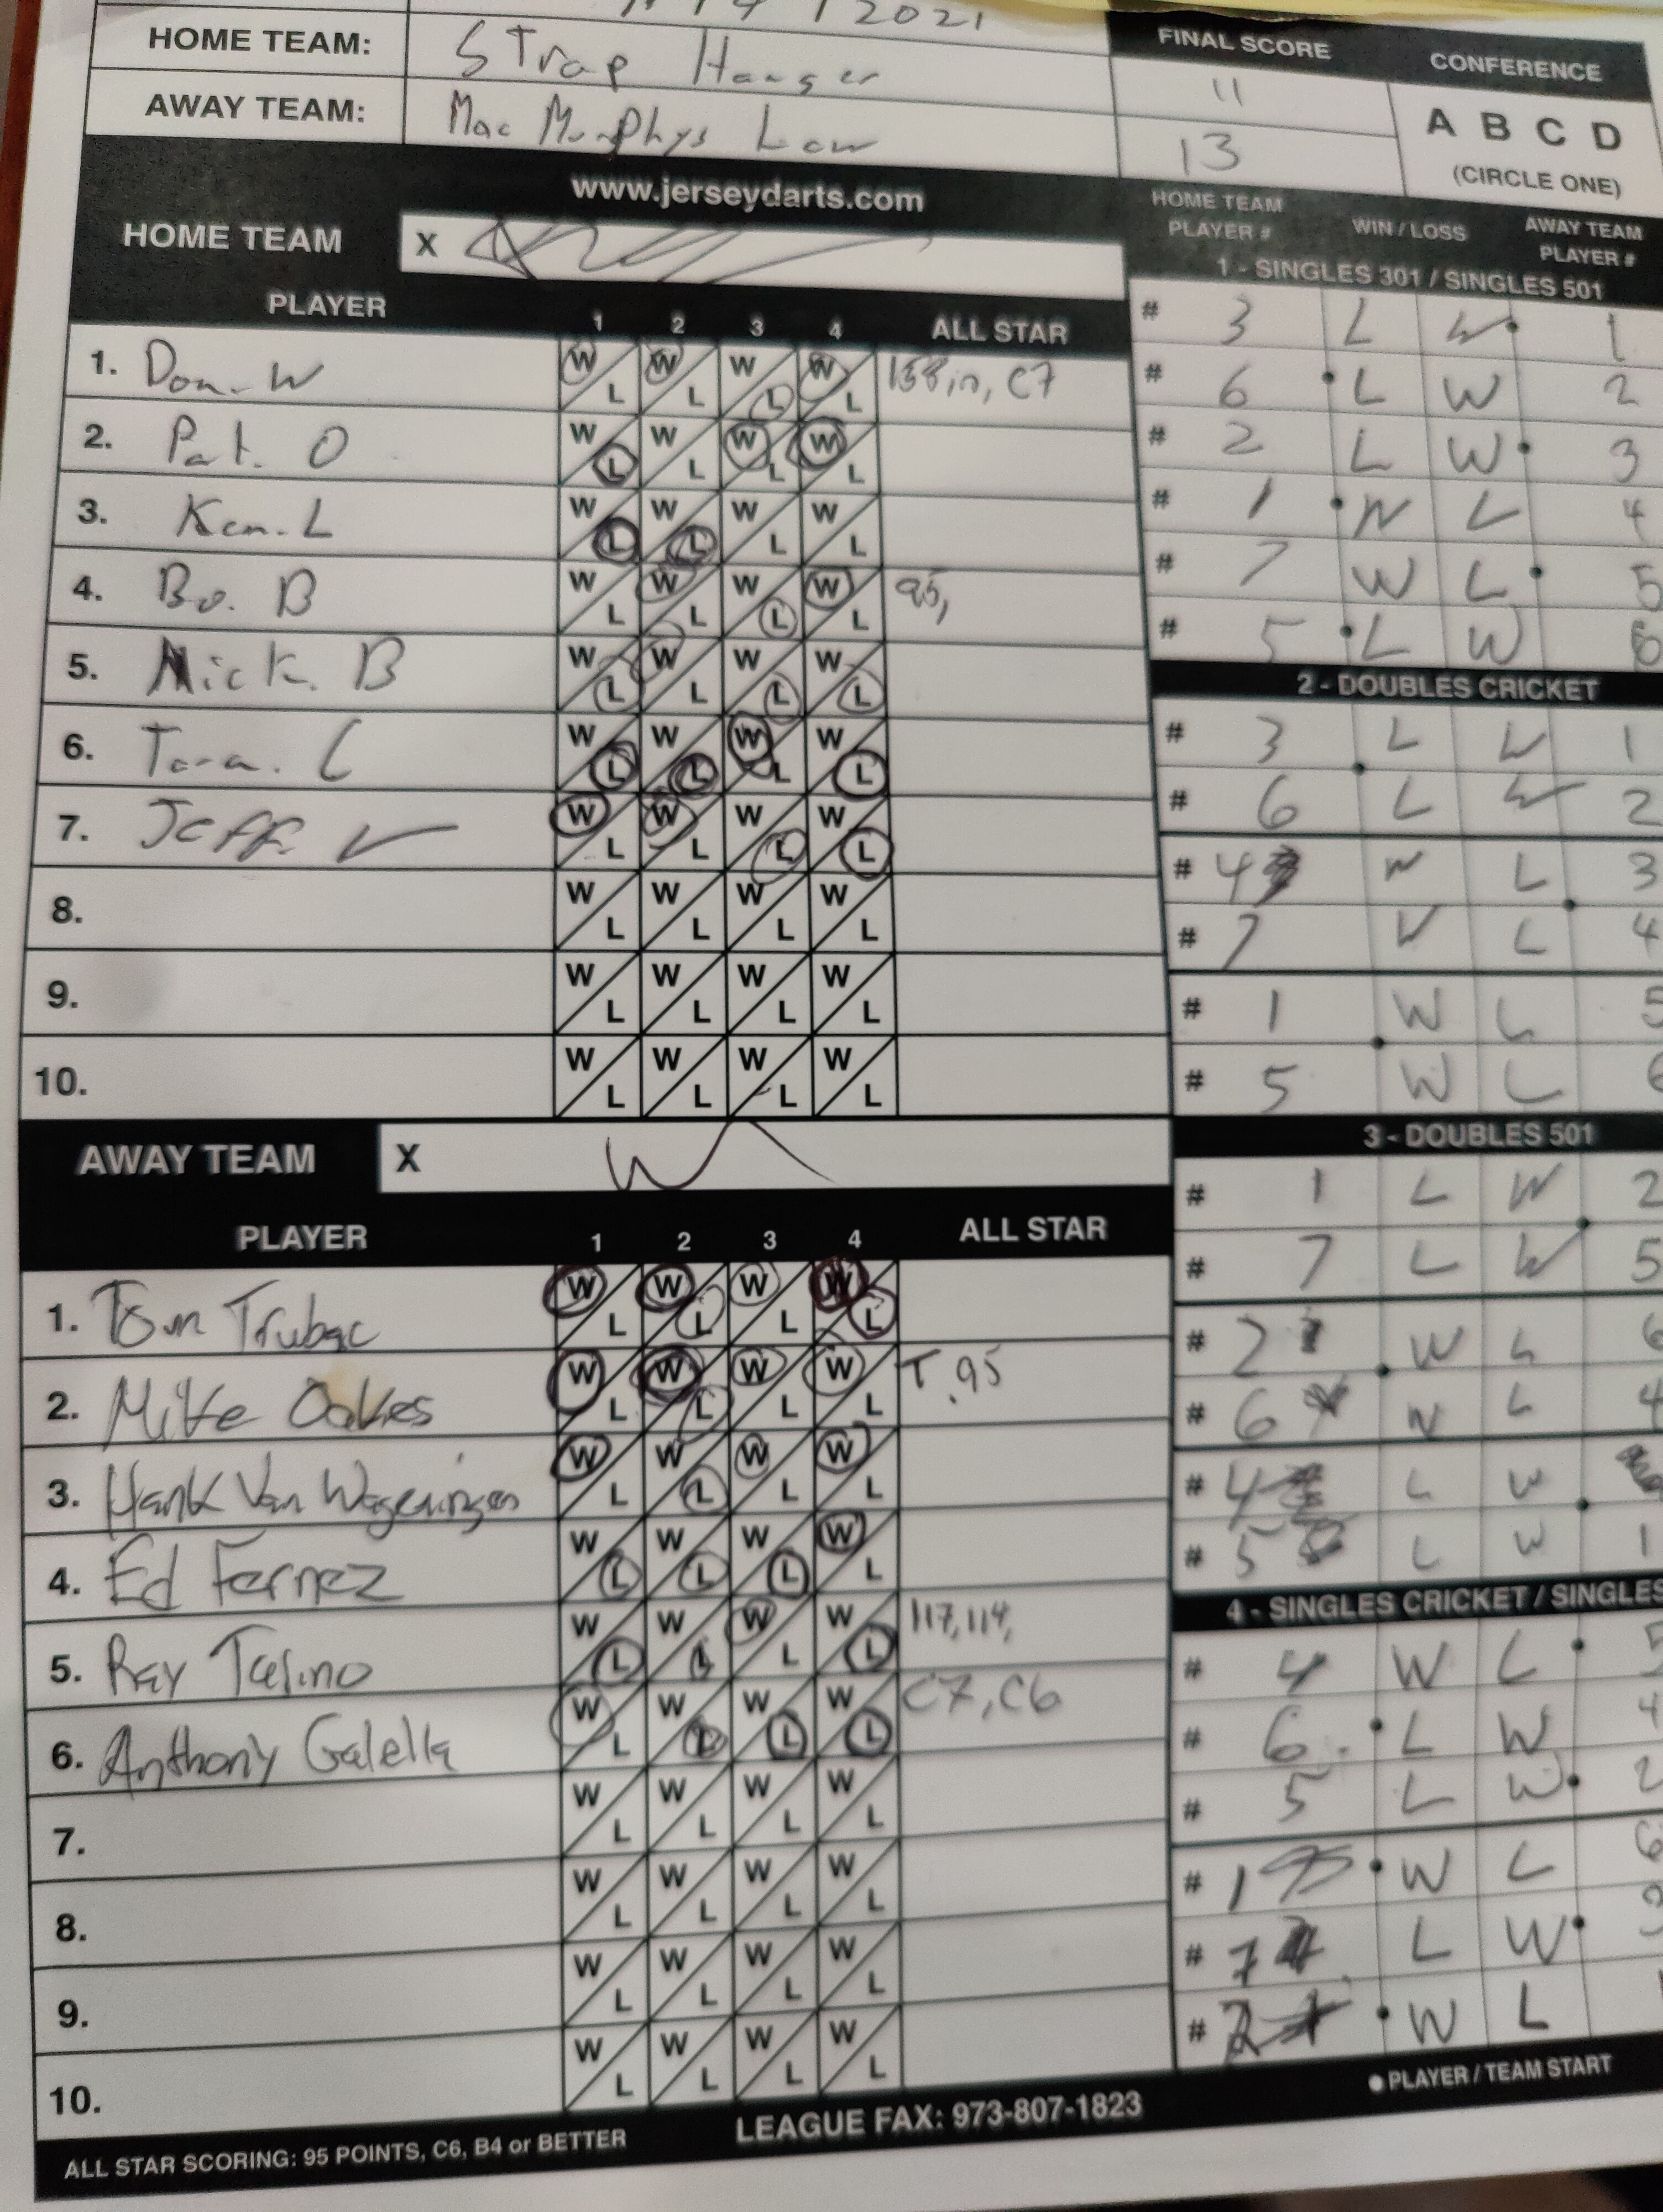 2021
HOME TEAM: Strap Hanger
AWAY TEAM: Mac Murphys Law
FINAL SCORE
11
13
CONFERENCE
A B C D
(CIRCLE ONE)
www.jerseydarts.com
HOME TEAM X
PLAYER 1 2 3 4 ALL STAR
1. Don. W W L W L W L W L 158in, C7
2. Pat. O W L W L W L W L
3. Ken. L W L W L W L W L
4. Bo. B W L W L W L W L 95,
5. Nick. B W L W L W L W L
6. Tara. C W L W L W L W L
7. Jeff. V W L W L W L W L
8. W L W L W L W L
9. W L W L W L W L
10. W L W L W L W L
AWAY TEAM X
PLAYER 1 2 3 4 ALL STAR
1. Tom Trubac W L W L W L W L
2. Mike Oakes W L W L W L W L T.95
3. Hank Van Wageningen W L W L W L W L
4. Ed Fernez W L W L W L W L
5. Ray W L W L W L W L 117, 114,
6. Anthony Galella W L W L W L W L C7, C6
7. W L W L W L W L
8. W L W L W L W L
9. W L W L W L W L
10. W L W L W L W L
ALL STAR SCORING: 95 POINTS, C6, B4 or BETTER
LEAGUE FAX: 973-807-1823
HOME TEAM PLAYER # WIN / LOSS AWAY TEAM PLAYER #
1 - SINGLES 301 / SINGLES 501
# 3 L W 1
# 6 L W 2
# 2 L W 3
# 1 W L 4
# 7 W L 5
# 5 L W 6
2 - DOUBLES CRICKET
# 3 L W 1
# 6 L W 2
# 4 W L 3
# 7 W L 4
# 1 W L 5
# 5 W L 6
3 - DOUBLES 501
# 1 L W 2
# 7 L W 5
# 2 W L 6
# 6 W L 4
# 4 L W
# 5 L W 1
4 - SINGLES CRICKET / SINGLES
# 4 W L 5
# 6 L W 4
# 5 L W 2
# 1 W L 6
# 7 L W 3
# 2 W L
PLAYER / TEAM START